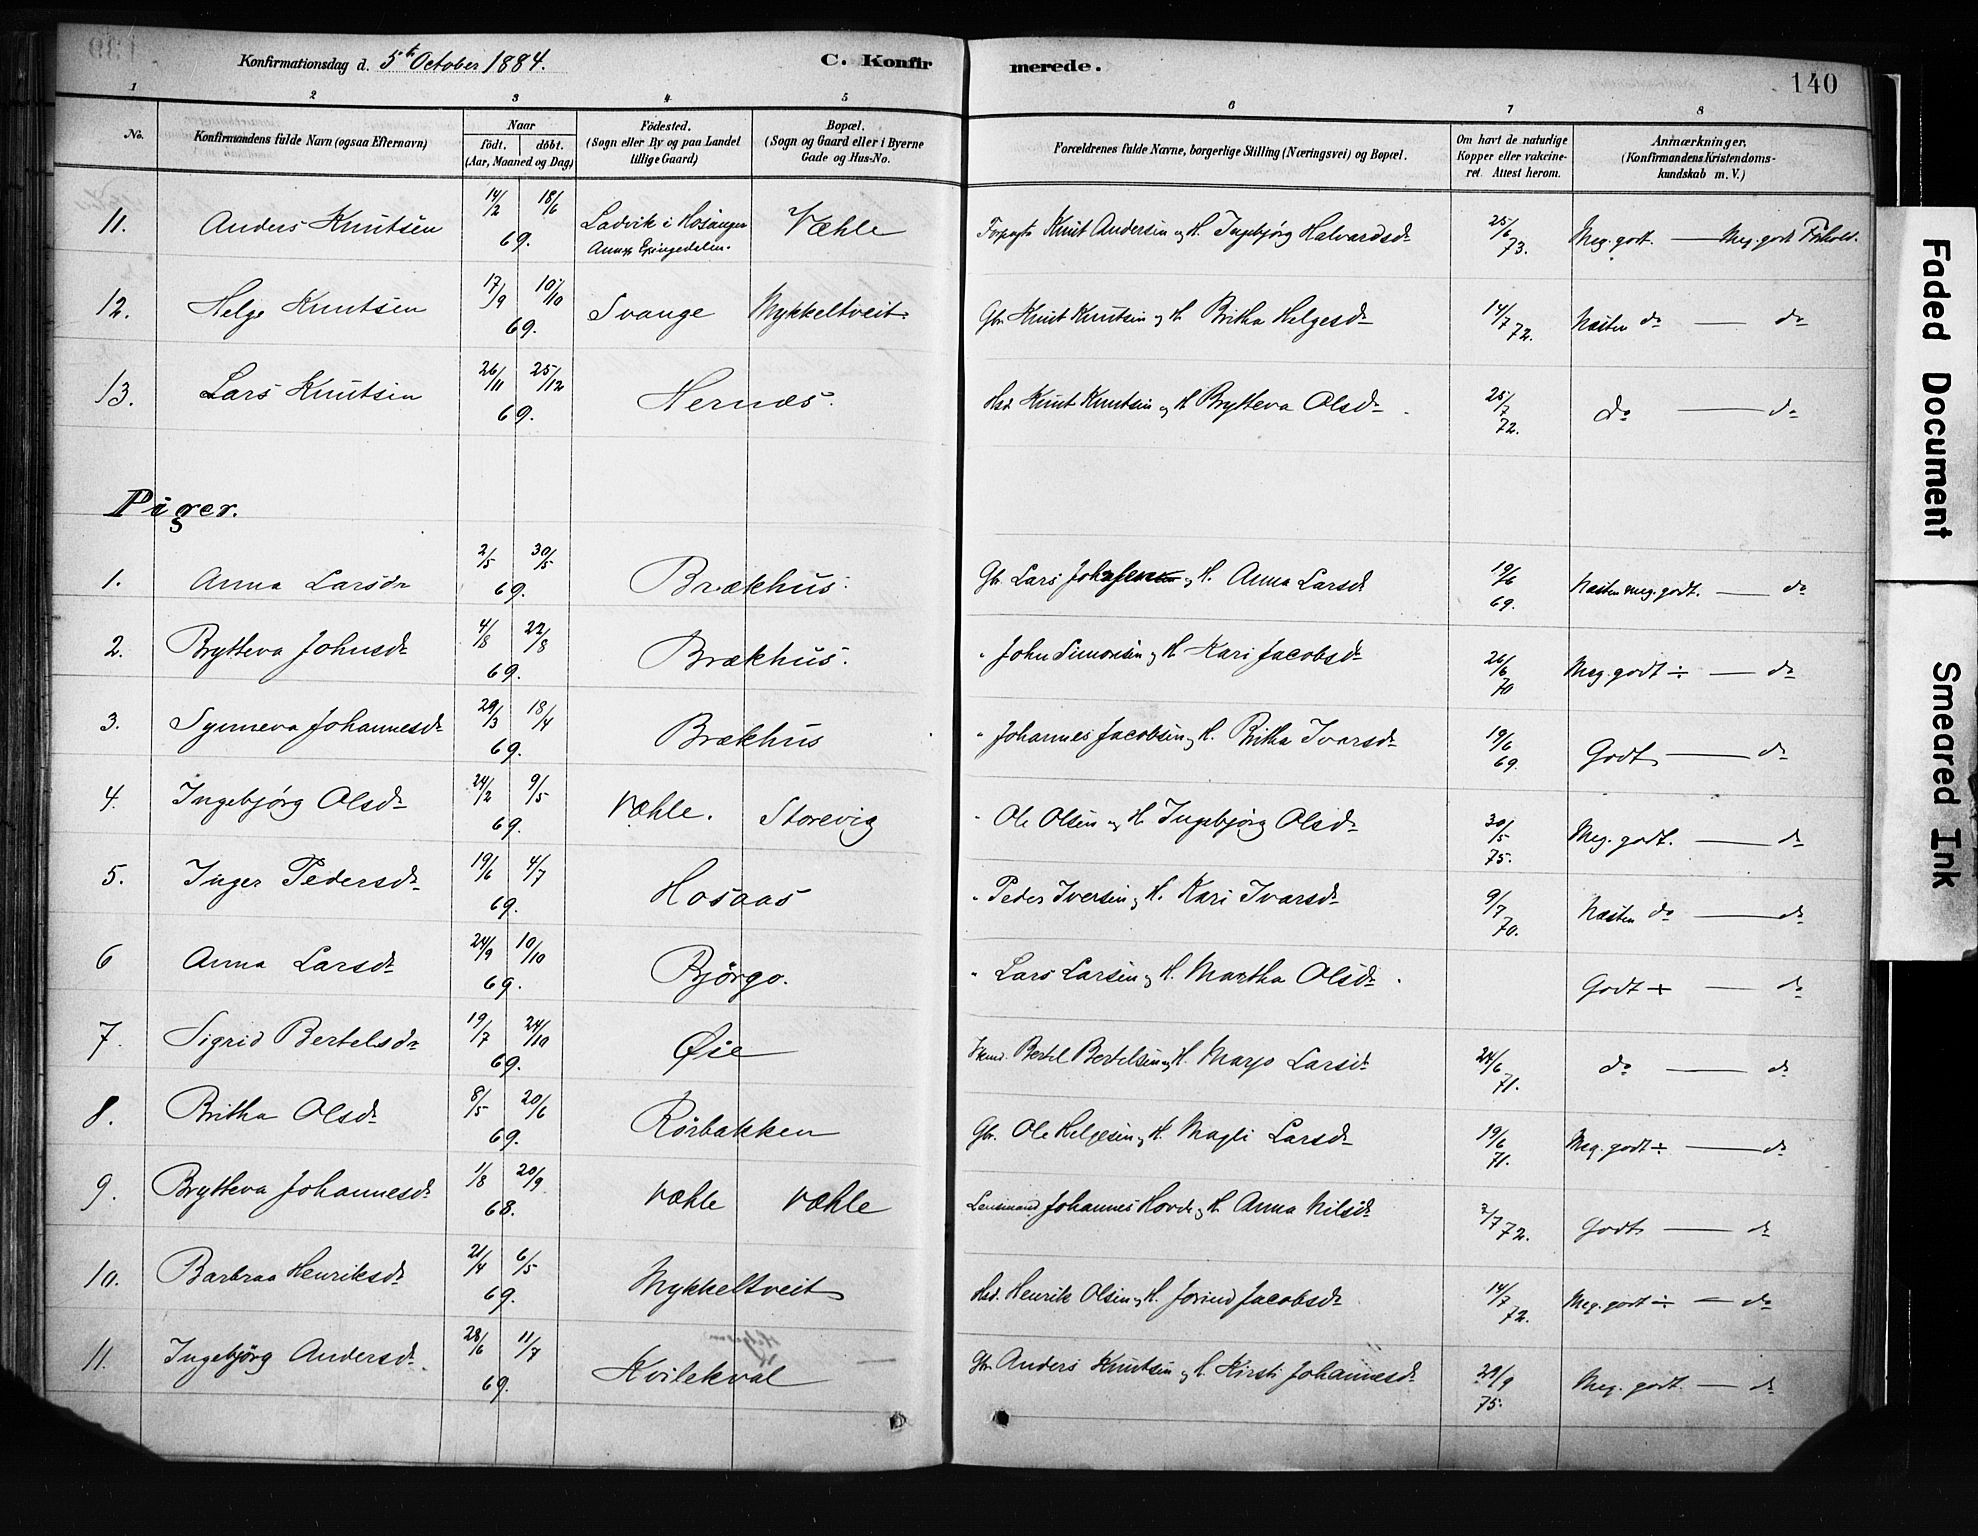 Konfirmationsdag d. 5te October 1884. C. Konfir merede. 140
1 2 3 4 5 6 7 8
No. Konfirmandens fulde Navn (ogsaa Efternavn) Naar født. døbt. (Aar, Maaned og Dag) Fødested. (Sogn eller By og paa Landet tillige Gaard) Bopæl. (Sogn og Gaard eller i Byerne Gade og Hus-No. Forældrenes fulde Navne, borgerlige Stilling (Næringsvei) og Bopæl. Om havt de naturlige Kopper eller vakcineret. Attest herom. Anmærkninger. (Konfirmandens Kristendomskundskab m. V.)
11. Anders Knutsen 14/2 18/6 69. Ladvik i Hosanger Væhle Knut Andersen og H. Ingebjørg Halvardsdr 25/6 73. Meg. godt. — Meg. godt Forhold.
12. Helge Knutsen 17/9 10/10 69. Svange Mykkeltveit Gbr. Knut Knutsen og H. Britha Helgesdr 14/7 72. Næsten do — do
13. Lars Knutsen 26/11 25/12 69. Hernæs. Hsd. Knut Knutsen og H. Brytteva Olsdr 25/7 72. do — do
Piger.
1. Anna Larsdr 2/5 30/5 69. Brækhus. Gbr. Lars Johnsen og H. Anna Larsdr 19/6 69. Næsten meg. godt. — do
2. Brytteva Johnsdr 4/8 22/8 69. Brækhus. " John Simonsen og H. Kari Jacobsdr 26/6 70 Meg. godt ÷ — do
3. Synneva Johannesdr 29/3 18/4 69. Brækhus " Johannes Jacobsen og H. Britha Ivarsdr 19/6 69. Godt — do
4. Ingebjørg Olsdr 24/2 9/5 69. Væhle. Storevig " Ole Olsen og H. Ingebjørg Olsdr 30/5 75. Meg. godt. — do
5. Inger Pedersdr 19/6 4/7 69. Hosaas " Peder Iversen og H. Kari Ivarsdr 9/7 70. Næsten do — do
6 Anna Larsdr 24/9 10/10 69. Bjørgo. " Lars Larsen og H. Martha Olsdr. Godt + — do
7. Sigrid Bertelsdr 19/7 24/10 69. Øie Bertel Bertelsen og H. Marjo Larsdr 24/6 71. do — do
8. Britha Olsdr 8/5 20/6 69. Rørbakken Gbr. Ole Helgesen og H. Magli Larsdr 19/6 71. Meg. godt ÷ — do
9. Brytteva Johannesdr 1/8 20/9 68. Væhle Væhle Lensmand Johannes Hovde og H. Anna Nilsdr 7/7 72. Godt — do
10. Barbraa Henriksdr 21/4 6/5 69. Mykkeltveit Hsd. Henrik Olsen og H. Jorind Jacobsdr 14/7 72. Meg. godt ÷ — do
11. Ingebjørg Andersdr. 28/6 11/7 69. Kvilekval Gbr. Anders Knutsen og H. Kirsti Johannesdr 29/9 75. Meg. godt. — do
Faded Document
Smeared Ink